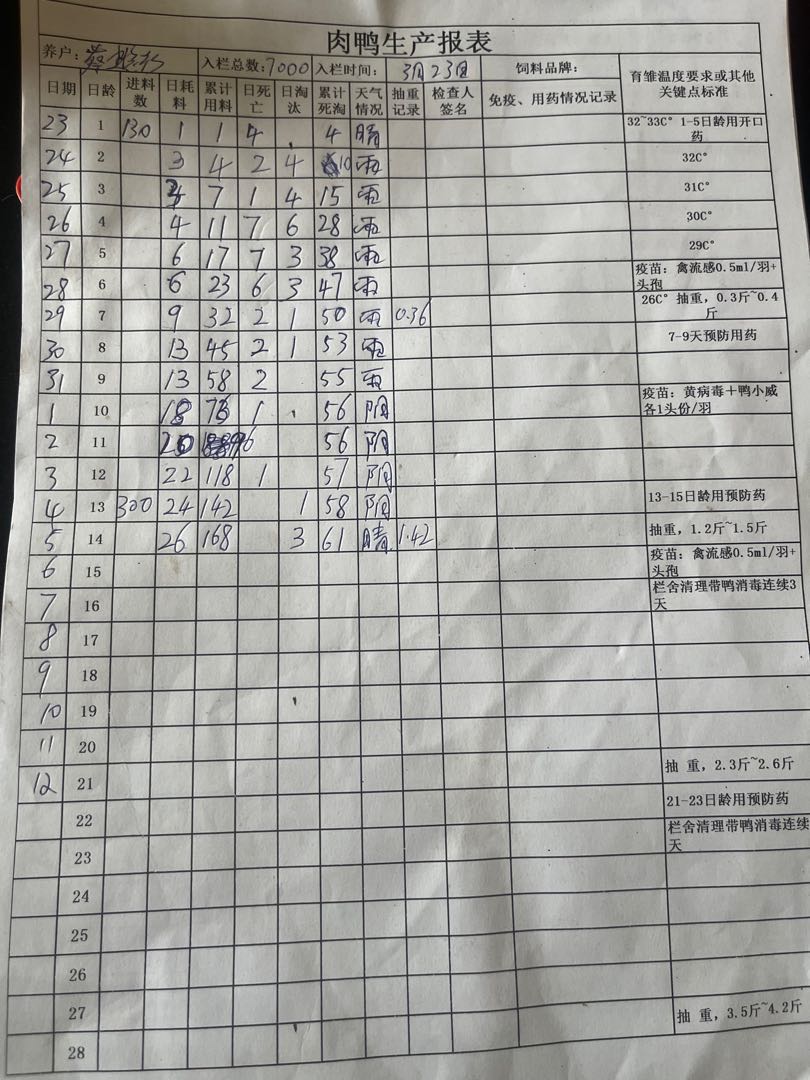 肉鸭生产报表
养户: 入栏总数:7000 入栏时间: 3月23日 饲料品牌: 育雏温度要求或其他关键点标准
日期 日龄 进料数 日耗料 累计用料 日死亡 日淘汰 累计死淘 天气情况 抽重记录 检查人签名 免疫、用药情况记录
23 1 130 1 1 4 4 晴 32~33C° 1-5日龄用开口药
24 2 3 4 2 4 10 雨 32C°
25 3 3 7 1 4 15 雨 31C°
26 4 4 11 7 6 28 雨 30C°
27 5 6 17 7 3 38 雨 29C°
28 6 6 23 6 3 47 雨 疫苗: 禽流感0.5ml/羽+头孢
29 7 9 32 2 1 50 雨 0.36 26C° 抽重, 0.3斤~0.4斤
30 8 13 45 2 1 53 雨 7-9天预防用药
31 9 13 58 2 55 雨
1 10 18 76 1 56 阴 疫苗: 黄病毒+鸭小威各1头份/羽
2 11 20 96 56 阴
3 12 22 118 1 57 阴
4 13 300 24 142 1 58 阴 13-15日龄用预防药
5 14 26 168 3 61 晴 1.42 抽重, 1.2斤~1.5斤
6 15 疫苗: 禽流感0.5ml/羽+头孢
7 16 栏舍清理带鸭消毒连续3天
8 17
9 18
10 19
11 20
12 21 抽 重, 2.3斤~2.6斤
22 21-23日龄用预防药
23 栏舍清理带鸭消毒连续天
24
25
26
27 抽 重, 3.5斤~4.2斤
28